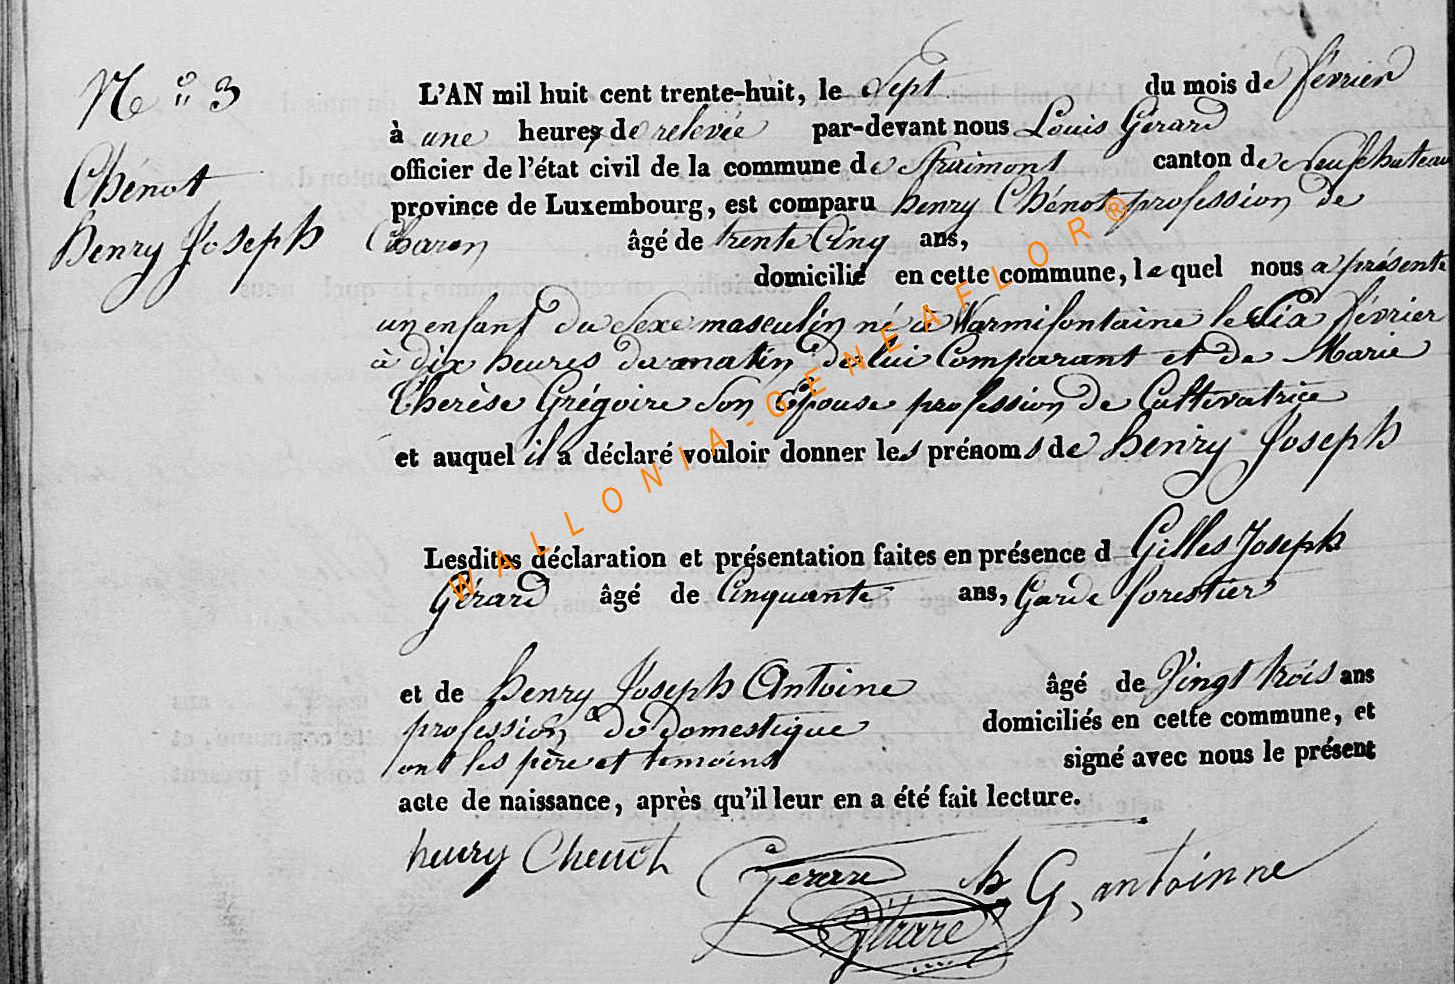 N° 3
Chénot
henry Joseph
L'AN mil huit cent trente-huit, le sept du mois de février
à une heures de relevée par-devant nous Louis Gérard
officier de l'état civil de la commune de Straimont canton de Neufchateau
province de Luxembourg, est comparu henry Chénot profession de
Charon âgé de trente Cinq ans,
domicilié en cette commune, le quel nous a présenté
un enfant du Sexe masculin né à Warmifontaine le Six février
à dix heures du matin de lui Comparant et de Marie
Therèse Grégoire Son Epouse profession de Cultivatrice
et auquel il a déclaré vouloir donner les prénoms de henry Joseph
Lesdites déclaration et présentation faites en présence d Gilles Joseph
Gérard âgé de Cinquante ans, Garde forestier
et de henry Joseph Antoine âgé de Vingt trois ans
profession de Domestique domiciliés en cette commune, et
ont les père et témoins signé avec nous le présent
acte de naissance, après qu'il leur en a été fait lecture.
henry Chenot Gerard h G, antoinne
Gérard
WALLONIA-GENEAFLOR®